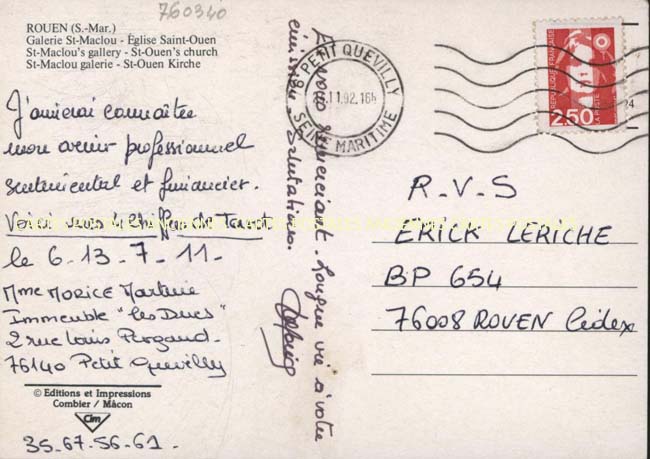 760340
ROUEN (S.-Mar.)
Galerie St-Maclou - Église Saint-Ouen
St-Maclou's gallery - St-Ouen's church
St-Maclou galerie - St-Ouen Kirche
J'aimerai connaître
mon avenir professionnel
sentimental et financier.
Voici mes 4 chiffres de Tarot
le 6-13-7-11-
Mme MORICE Martine
Immeuble "les Ducs"
2 rue Louis Pergaud-
76140 Petit Quevilly
© Editions et Impressions
Combier / Mâcon
Cim
35-67-56-61-
En vous remerciant. Longue vie à votre
émission. Salutations.
PETIT QUEVILLY
11.92.16h
SEINE MARITIME
REPUBLIQUE FRANÇAISE
2,50
LA POSTE
R.V.S
ERICK LERICHE
BP 654
76008 ROUEN Cédex